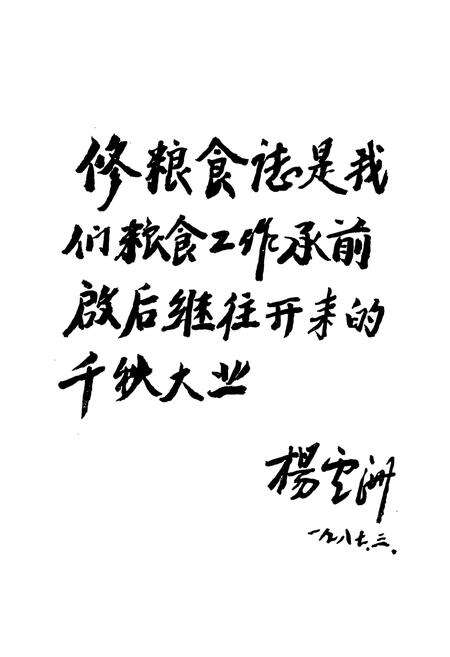 修粮食誌是我
们粮食工作承前
啟后继往开来的
千秋大业
楊雲洲
一九八七.三.